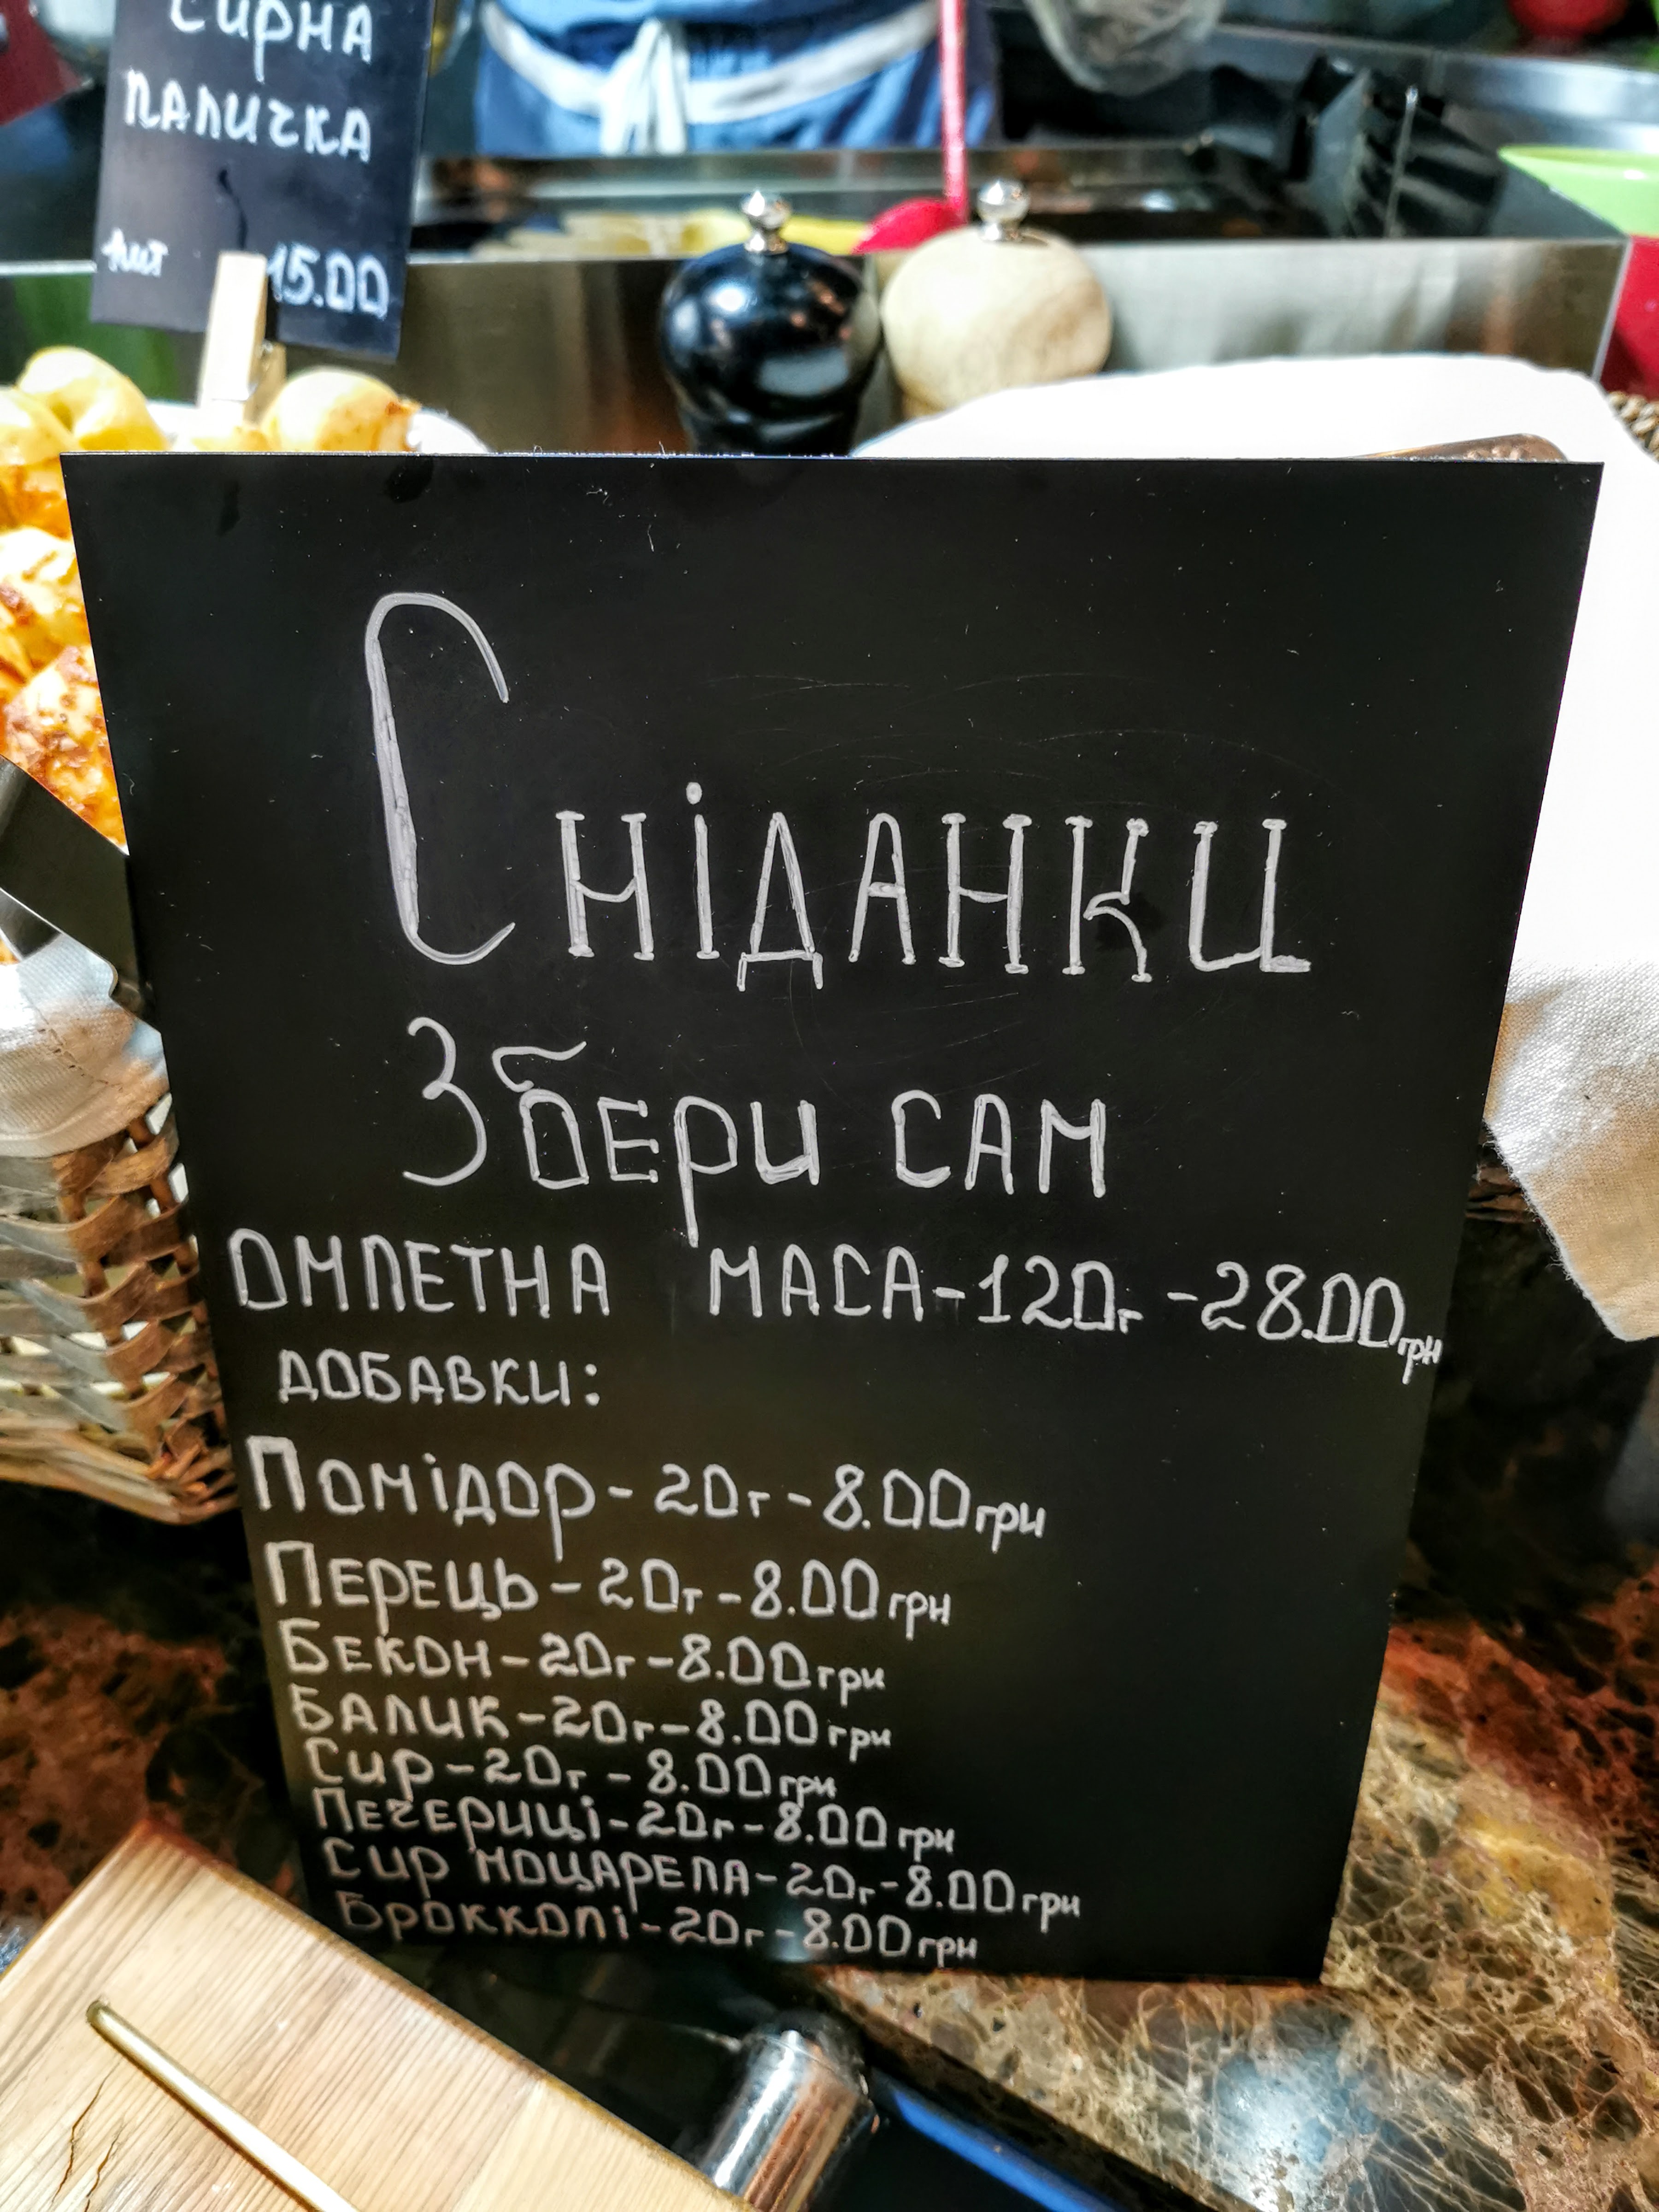 Сирна
паличка
1шт 15.00
Сніданки
Збери сам
Омлетна маса-120г-28.00грн
добавки:
Помідор-20г-8.00грн
Перець-20г-8.00грн
Бекон-20г-8.00грн
Балик-20г-8.00грн
Сир-20г-8.00грн
Печериці-20г-8.00грн
Сир моцарела-20г-8.00грн
Брокколі-20г-8.00грн